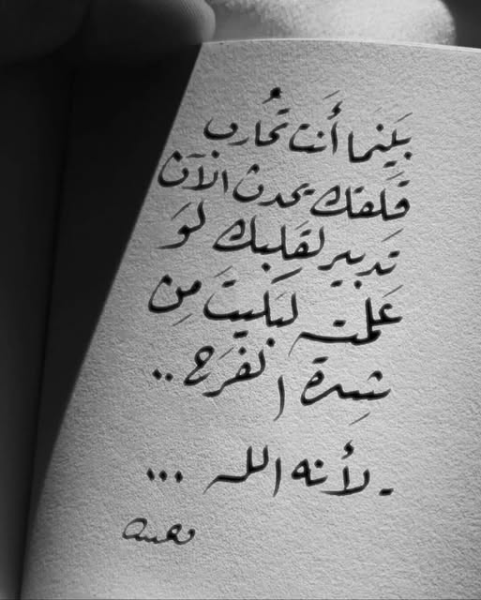 بَينَما أَنت تُحَارب
قَلقك يحدث الآن
تَدبير لقَلِبك لَوَ
عَلمته لبَكَيتَ مِن
شِدة الفَرَح ..
- لأنه الله ...